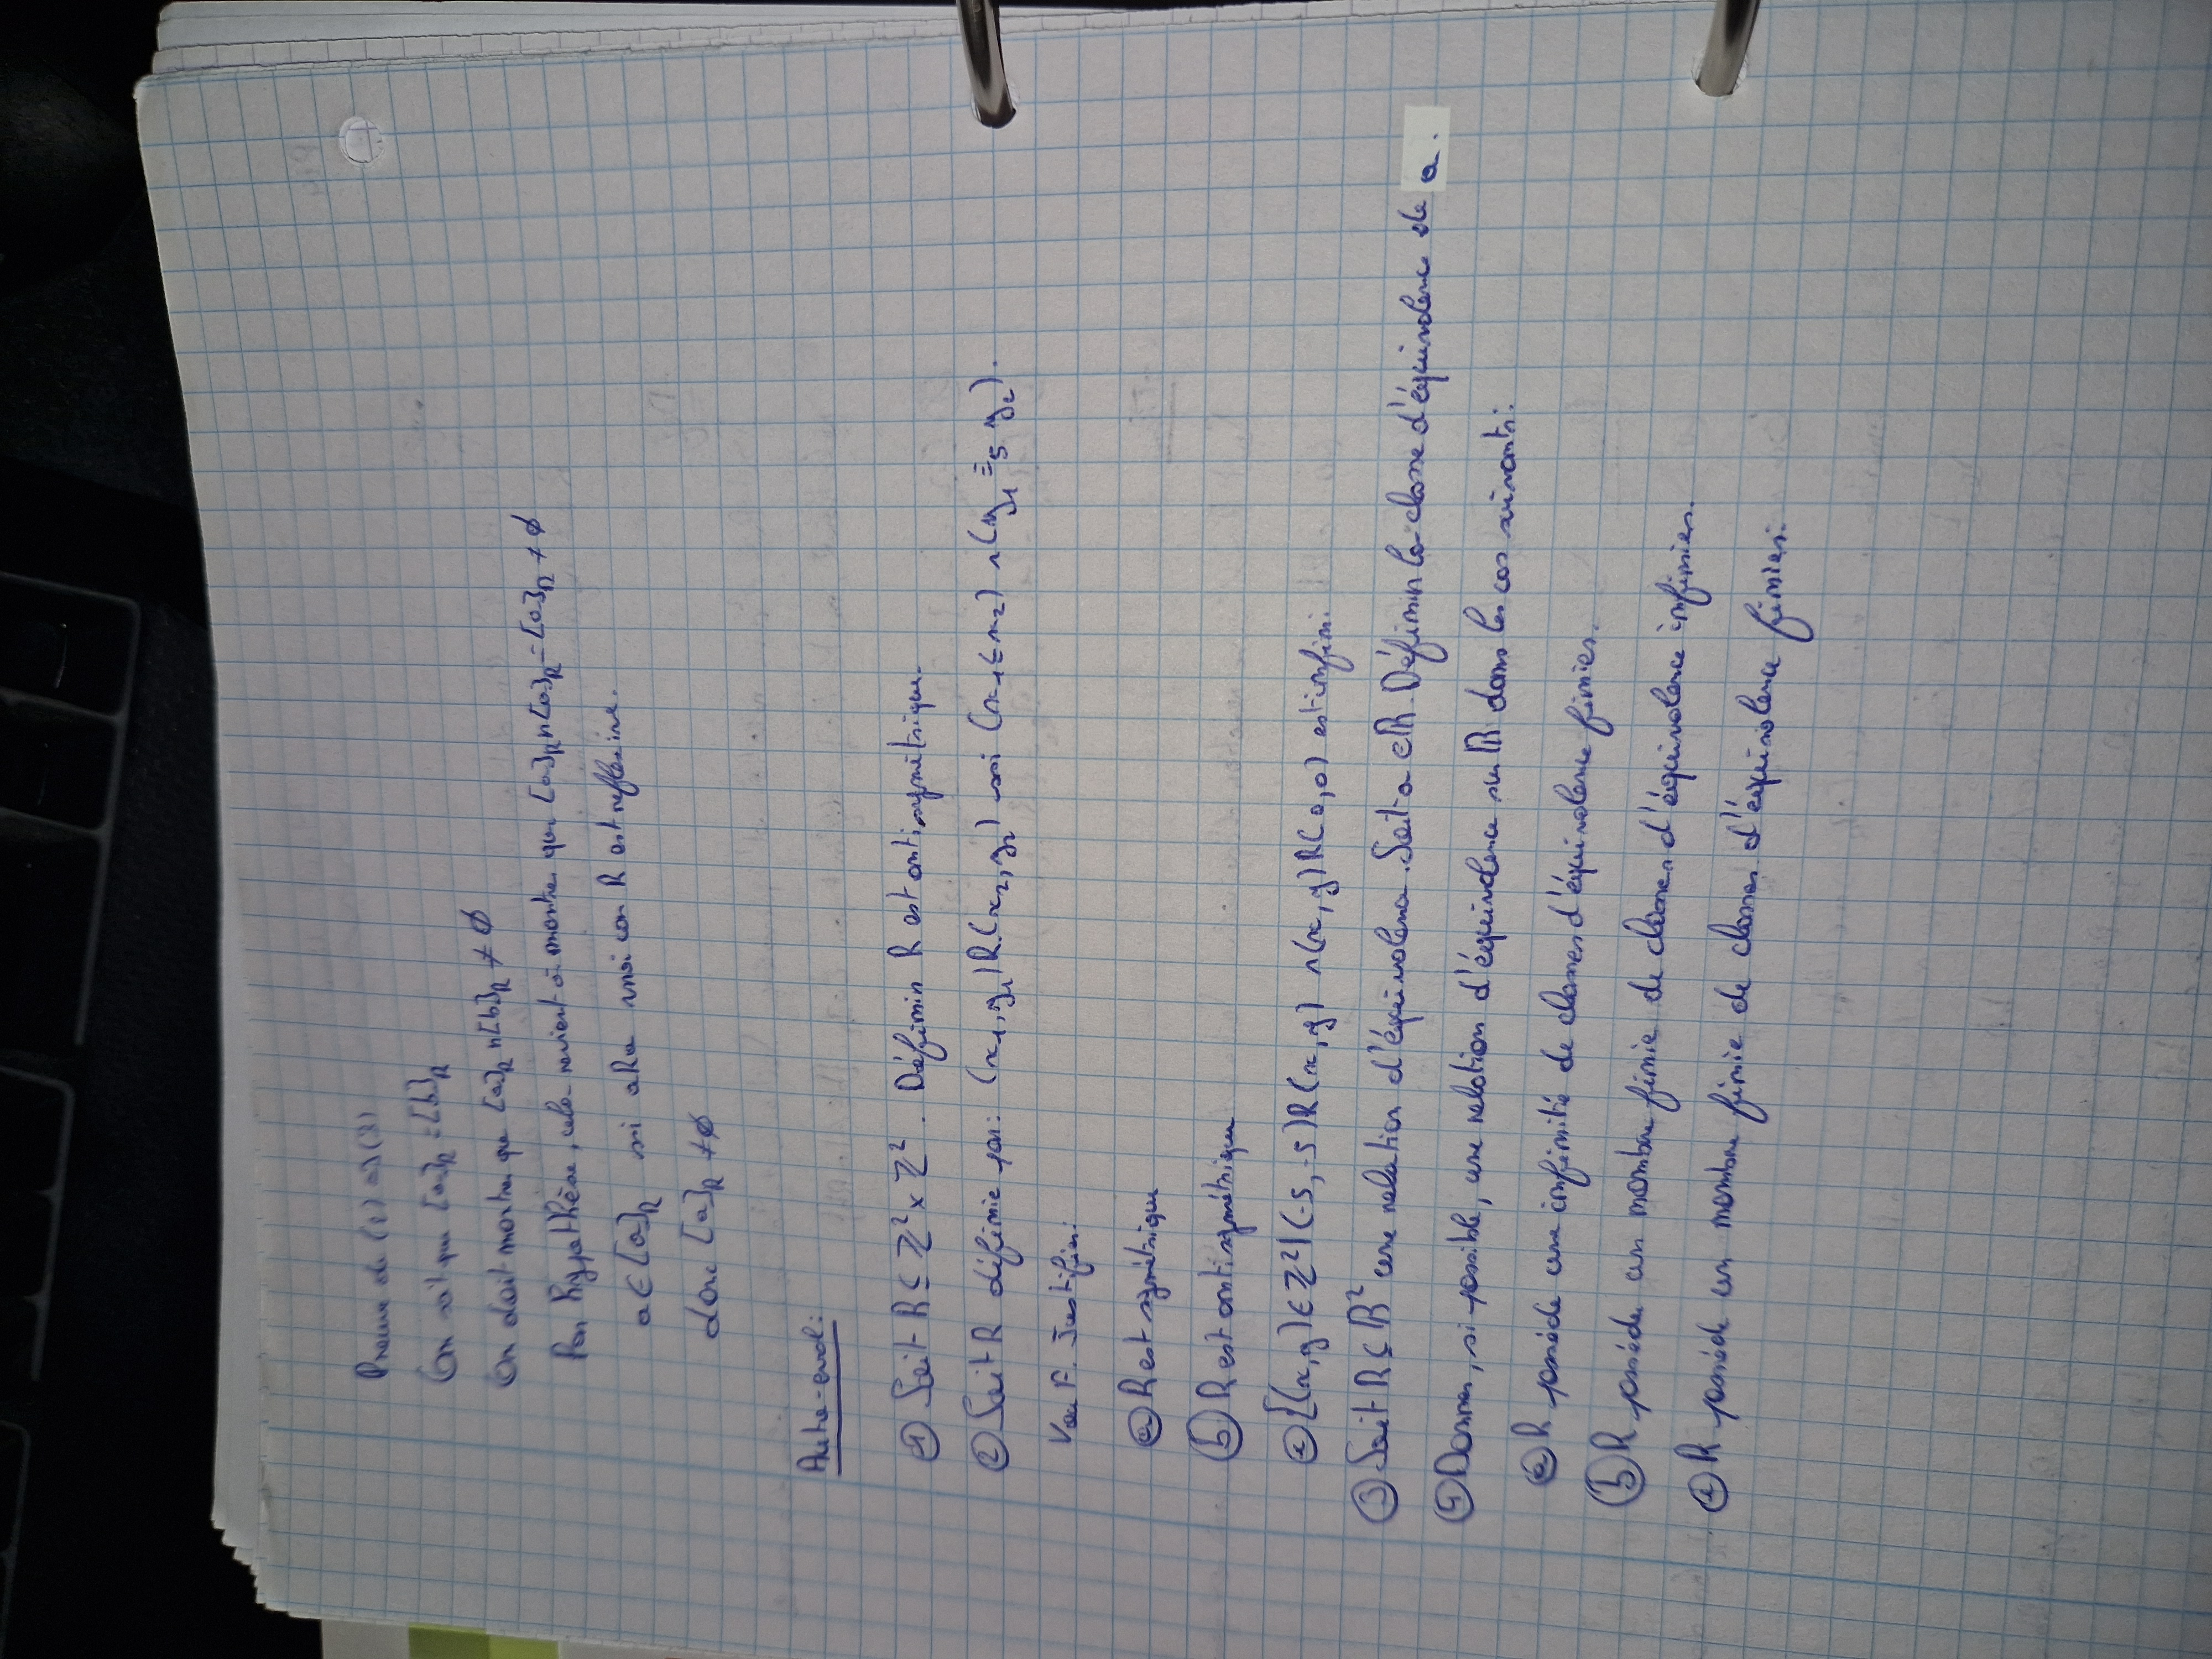 Preuve de (2) => (3)
On sait que [a]R = [b]R
On doit montrer que [a]R ∩ [b]R ≠ ∅
Par hypothèse, cela revient à montrer que [a]R ∩ [a]R = [a]R ≠ ∅
a ∈ [a]R ssi aRa vrai car R est reflexive.
donc [a]R ≠ ∅
Auto-eval:
① Soit R ⊆ ℤ² × ℤ². Définir R est antisymétrique.
② Soit R définie par: (x₁, y₁) R (x₂, y₂) ssi (x₁ ≤ x₂) ∧ (y₁ ≡₅ y₂).
V ou F. Justifier:
ⓐ R est symétrique
ⓑ R est antisymétrique
ⓒ {(x, y) ∈ ℤ² | (-5, -5) R (x, y) ∧ (x, y) R (0, 0) est infini.
③ Soit R ⊆ ℝ² une relation d'équivalence. Soit a ∈ ℝ. Définir la classe d'équivalence de a.
④ Donner, si possible, une relation d'équivalence sur ℝ dans les cas suivants:
ⓐ R possède une infinité de classes d'équivalence finies.
ⓑ R possède un nombre finie de classes d'équivalence infinies.
ⓒ R possède un nombre finie de classes d'équivalence finies.